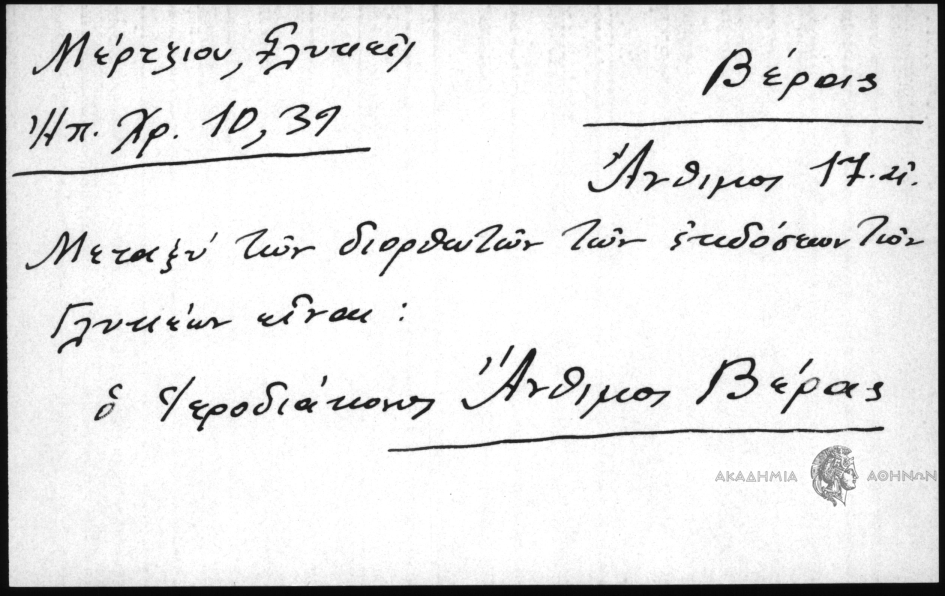 Μέρτζιου, Γλυκεῖς
Ἠπ. Χρ. 10, 39
Βέρας
Ἄνθιμος 17. αἰ.
Μεταξύ τῶν διορθωτῶν τῶν ἐκδόσεων τῶν
Γλυκέων εἶναι :
ὁ Ἱεροδιάκονος Ἄνθιμος Βέρας
ΑΚΑΔΗΜΙΑ ΑΘΗΝΩΝ